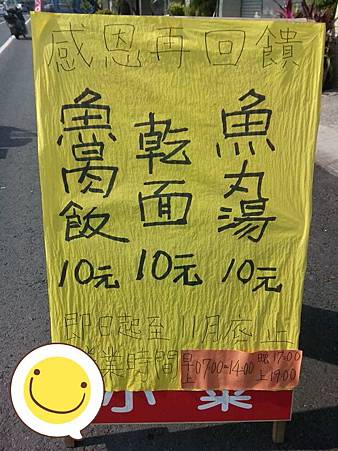 感恩再回饋
魚丸湯 10元
乾面 10元
魯肉飯 10元
即日起至11月底止
營業時間
早上07:00-14:00
晚上17:00
19:00
小菜